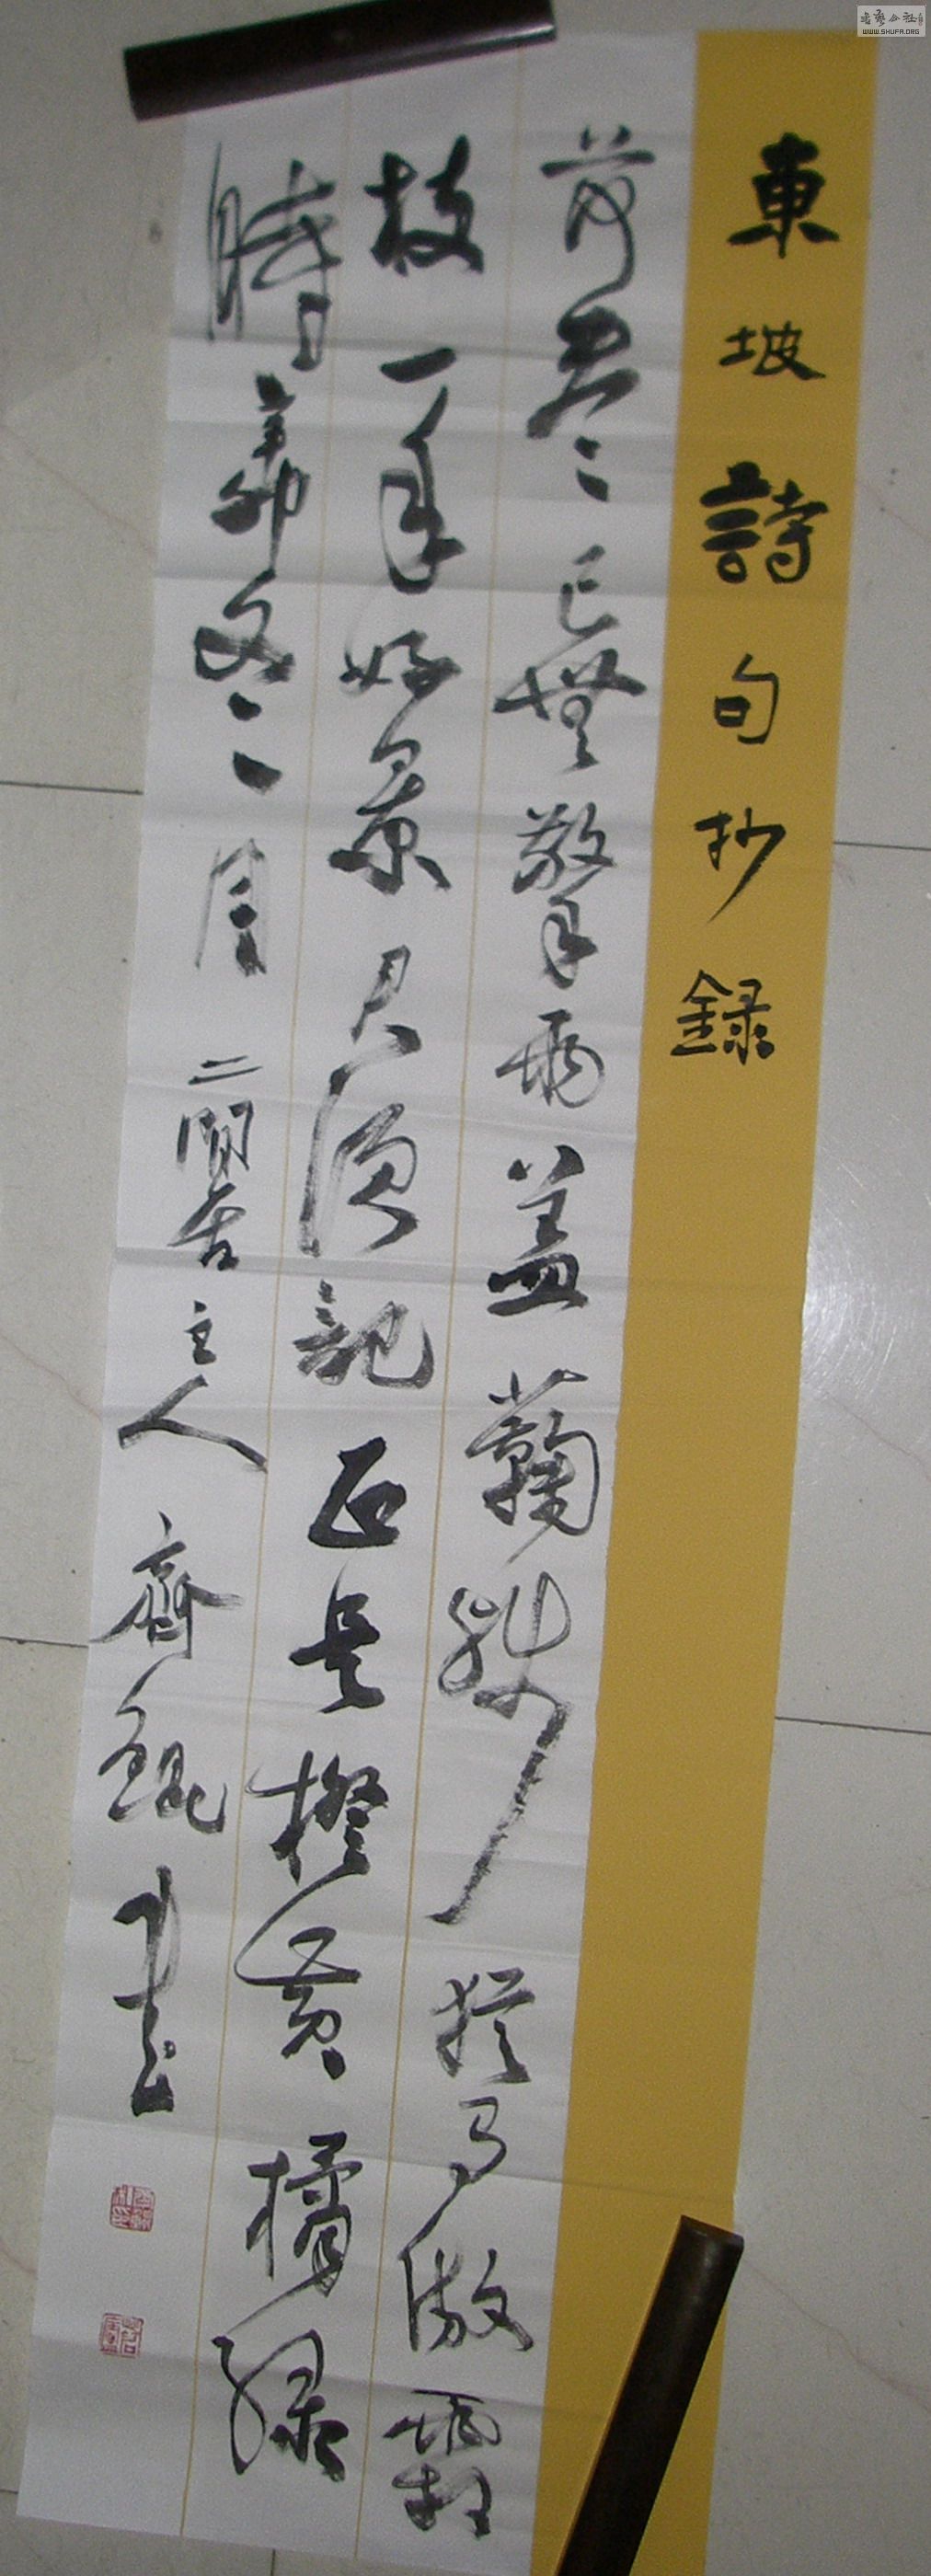 書藝公社
WWW.SHUFA.ORG
東坡詩句抄錄
荷盡已無擎雨盖蘜殘猶有傲霜
枝一年好景君須記正是橙黃橘綠
時辛卯冬月二閒居主人齊錕書